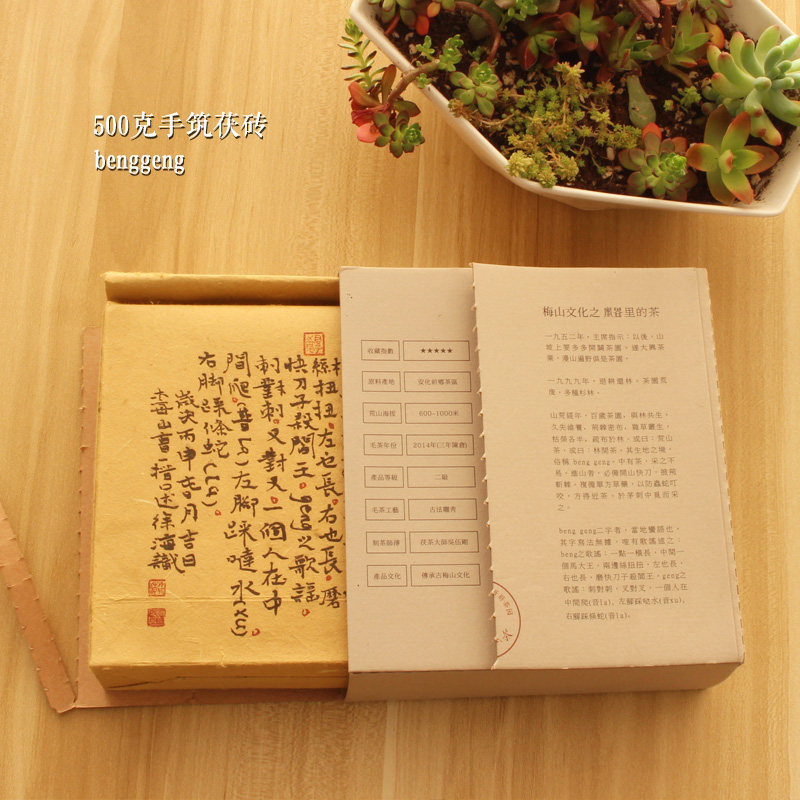 500克手筑茯砖
benggeng
梅山文化之 里的茶
一九五二年，主席指示：以後，山
坡上要多多開闢茶園。遂大興茶
業，漫山遍野俱是茶園。
一九九九年，退耕還林。茶園荒
廢，多種杉林。
山荒經年，百歲茶園，與林共生，
久失修養，荊棘密布，雜草叢生，
枯榮各半，疏布於林，或曰：荒山
茶，或曰：林間茶。其生地之境，
俗稱 beng geng，中有茶，采之不
易。進山者，必備開山快刀，披荊
斬棘，復備草方草藥，以防蟲蛇叮
咬，方得近茶。於茅刺中覓而采
之。
beng geng二字者，當地蠻語也。
其字寫法無據，唯有歌謠述之：
beng之歌謠：一點一橫長，中間一
個馬大王，兩邊絲扭扭，左也長，
右也長，磨快刀子殺閻王，geng之
歌謠：刺對刺，叉對叉，一個人在
中間爬(音la)，左腳踩噠水(音xu)，
右腳踩條蛇(音la)。
收藏指數 ★★★★★
原料產地 安化前鄉茶區
荒山海拔 600-1000米
毛茶年份 2014年(三年陳倉)
產品等級 二級
毛茶工藝 古法曬青
制茶師傅 茯茶大師吳伍剛
產品文化 傳承古梅山文化
絲扭扭，左也長，右也長，磨
快刀子殺閻王。geng之歌謠
刺對刺，叉對叉，一個人在中
間爬 左腳踩噠水(xu)
右腳踩條蛇(la)
歲次丙申 月吉日